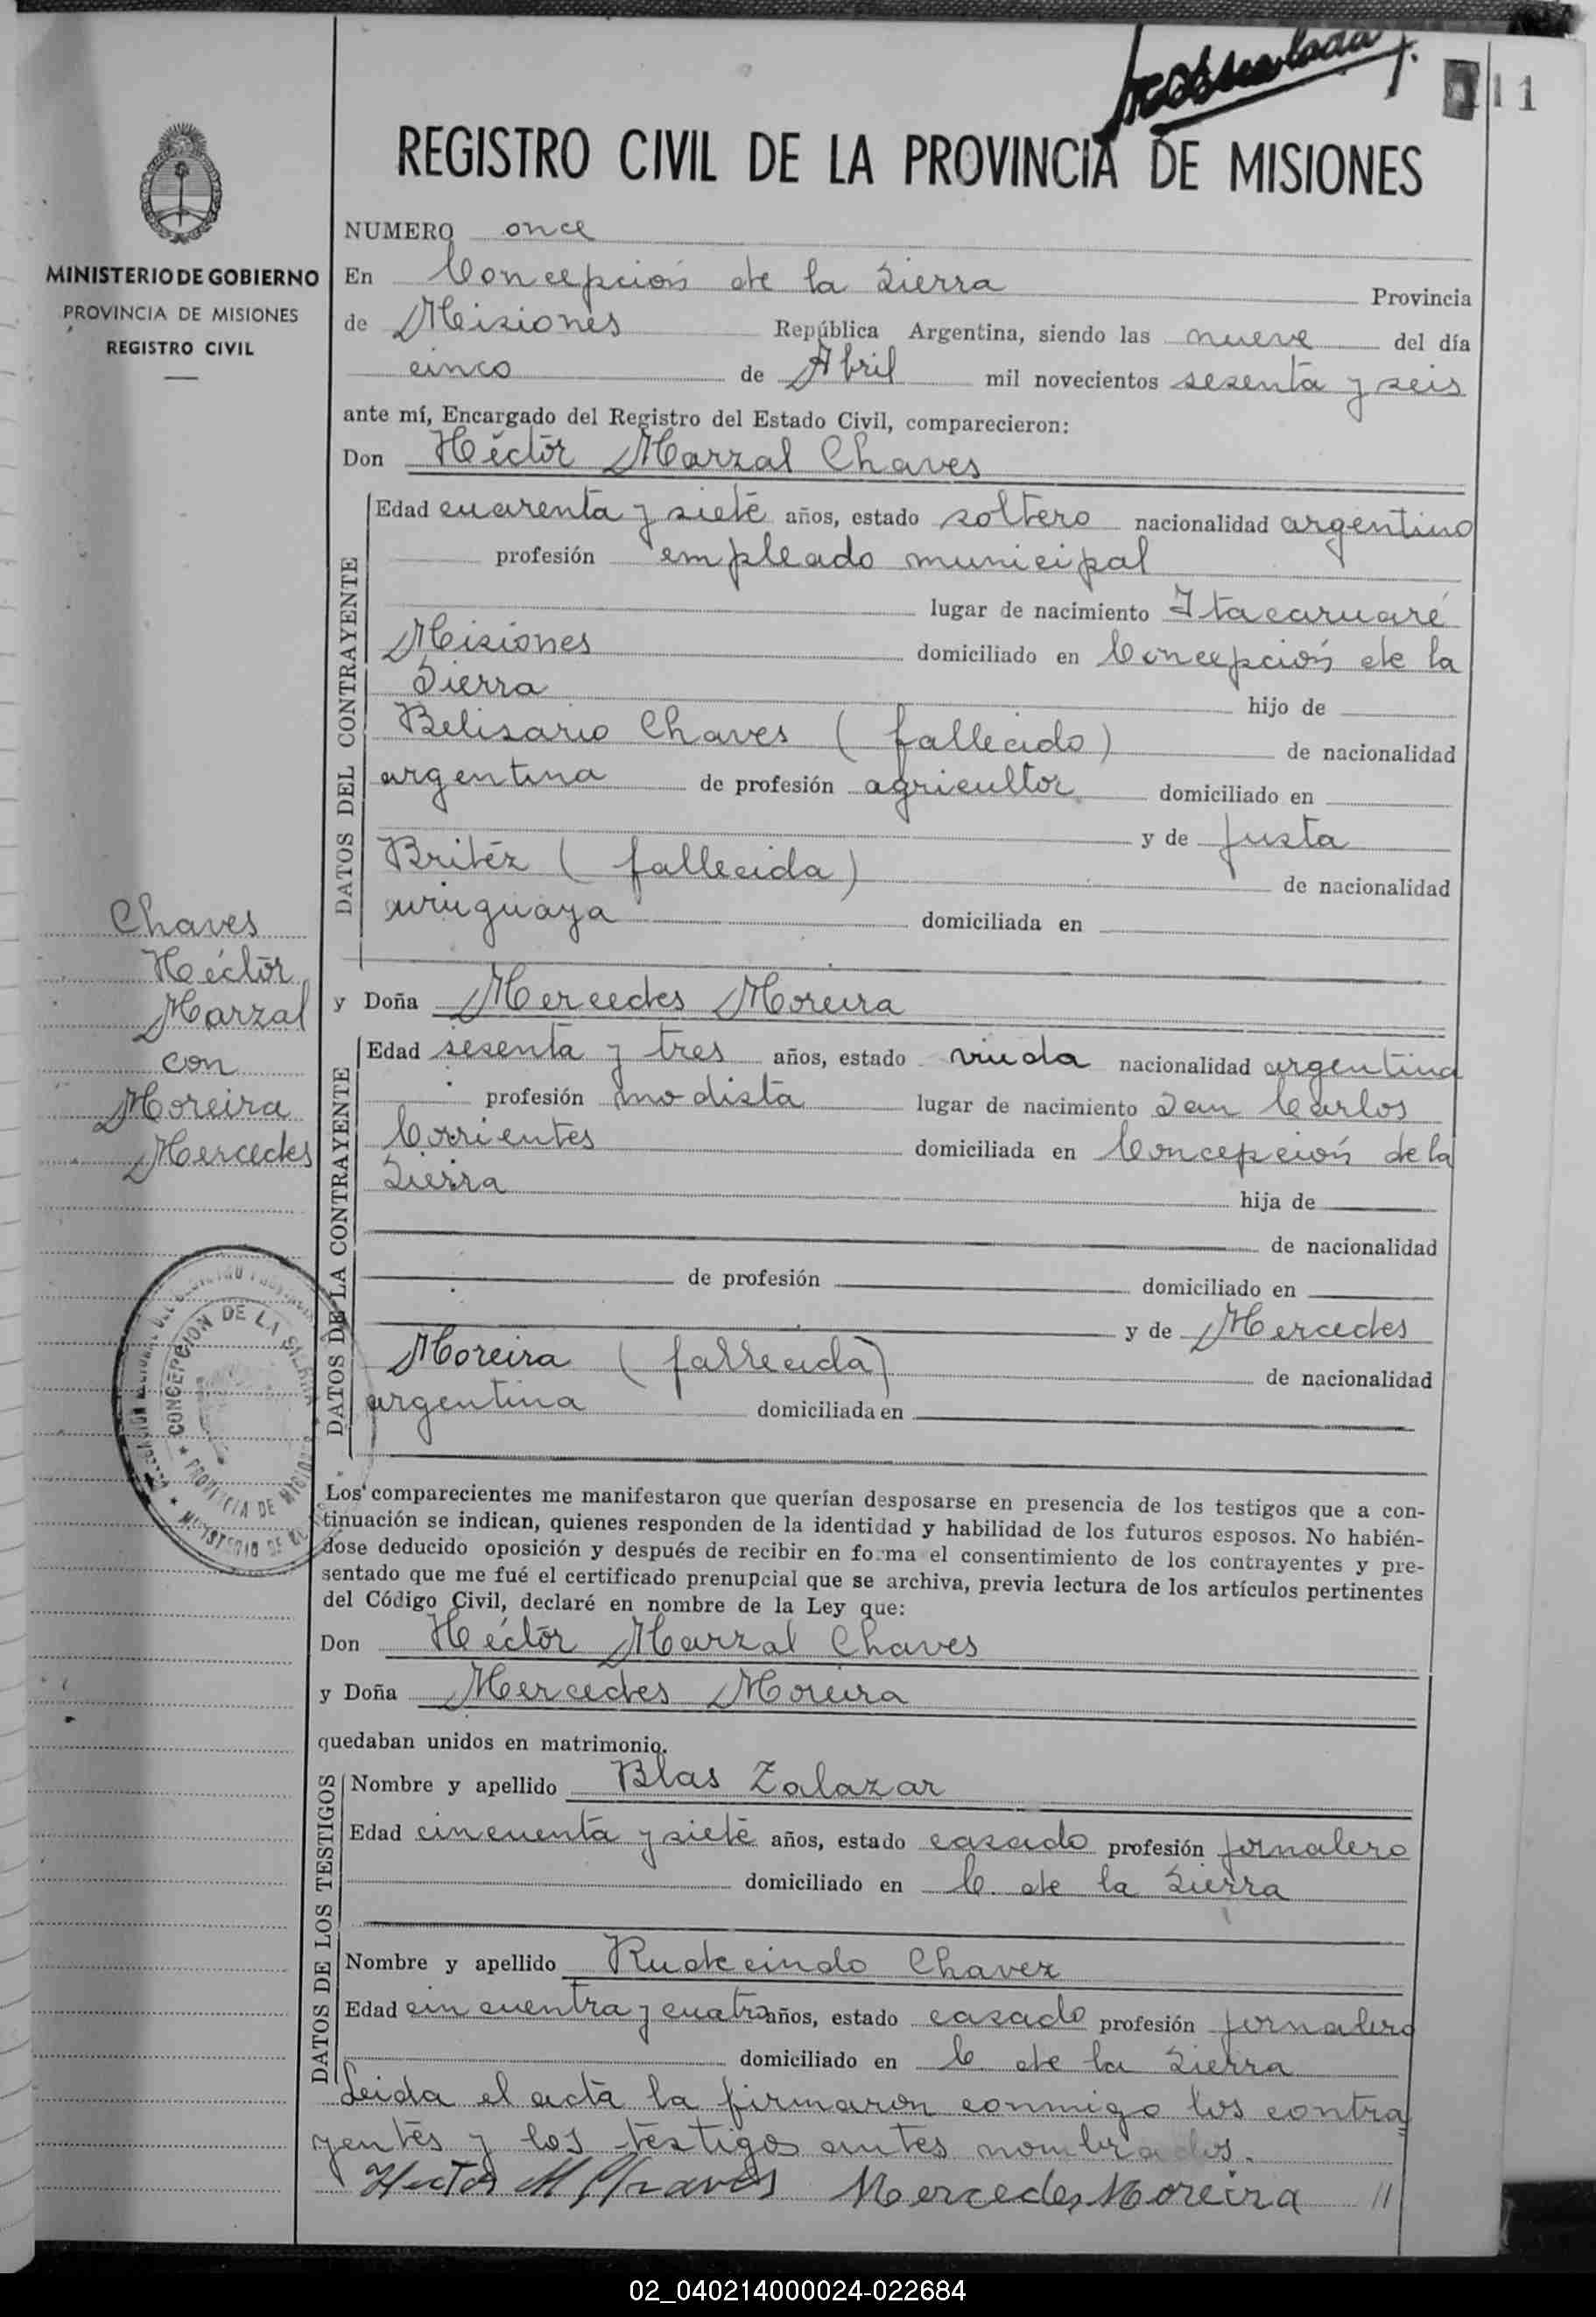 11
REGISTRO CIVIL DE LA PROVINCIA DE MISIONES
MINISTERIO DE GOBIERNO
PROVINCIA DE MISIONES
REGISTRO CIVIL
NUMERO once
En Concepción de la Sierra Provincia
de Misiones República Argentina, siendo las nueve del día
cinco de Abril mil novecientos sesenta y seis
ante mí, Encargado del Registro del Estado Civil, comparecieron:
Don Héctor Marzal Chaves
DATOS DEL CONTRAYENTE
Edad cuarenta y siete años, estado soltero nacionalidad argentino
profesión empleado municipal
lugar de nacimiento Itacaruaré
Misiones domiciliado en Concepción de la
Sierra hijo de
Belisario Chaves (fallecido) de nacionalidad
argentina de profesión agricultor domiciliado en
y de Justa
Britéz (fallecida) de nacionalidad
uruguaya domiciliada en
Chaves
Héctor
Marzal
con
Moreira
Mercedes
y Doña Mercedes Moreira
DATOS DE LA CONTRAYENTE
Edad sesenta y tres años, estado viuda nacionalidad argentina
profesión modista lugar de nacimiento San Carlos
Corrientes domiciliada en Concepción de la
Sierra hija de
de nacionalidad
de profesión domiciliado en
y de Mercedes
Moreira (fallecida) de nacionalidad
argentina domiciliada en
CONCEPCION DE LA SIERRA
PROVINCIA DE MISIONES
MINISTERIO DE
Los comparecientes me manifestaron que querían desposarse en presencia de los testigos que a con-
tinuación se indican, quienes responden de la identidad y habilidad de los futuros esposos. No habién-
dose deducido oposición y después de recibir en forma el consentimiento de los contrayentes y pre-
sentado que me fué el certificado prenupcial que se archiva, previa lectura de los artículos pertinentes
del Código Civil, declaré en nombre de la Ley que:
Don Héctor Marzal Chaves
y Doña Mercedes Moreira
quedaban unidos en matrimonio.
DATOS DE LOS TESTIGOS
Nombre y apellido Blas Zalazar
Edad cincuenta y siete años, estado casado profesión jornalero
domiciliado en C. de la Sierra
Nombre y apellido Rudecindo Chavez
Edad cincuentra y cuatro años, estado casado profesión jornalero
domiciliado en C. de la Sierra
Leida el acta la firmaron conmigo los contra
yentes y los testigos antes nombrados.
Hector M Chaves Mercedes Moreira //
02_040214000024-022684